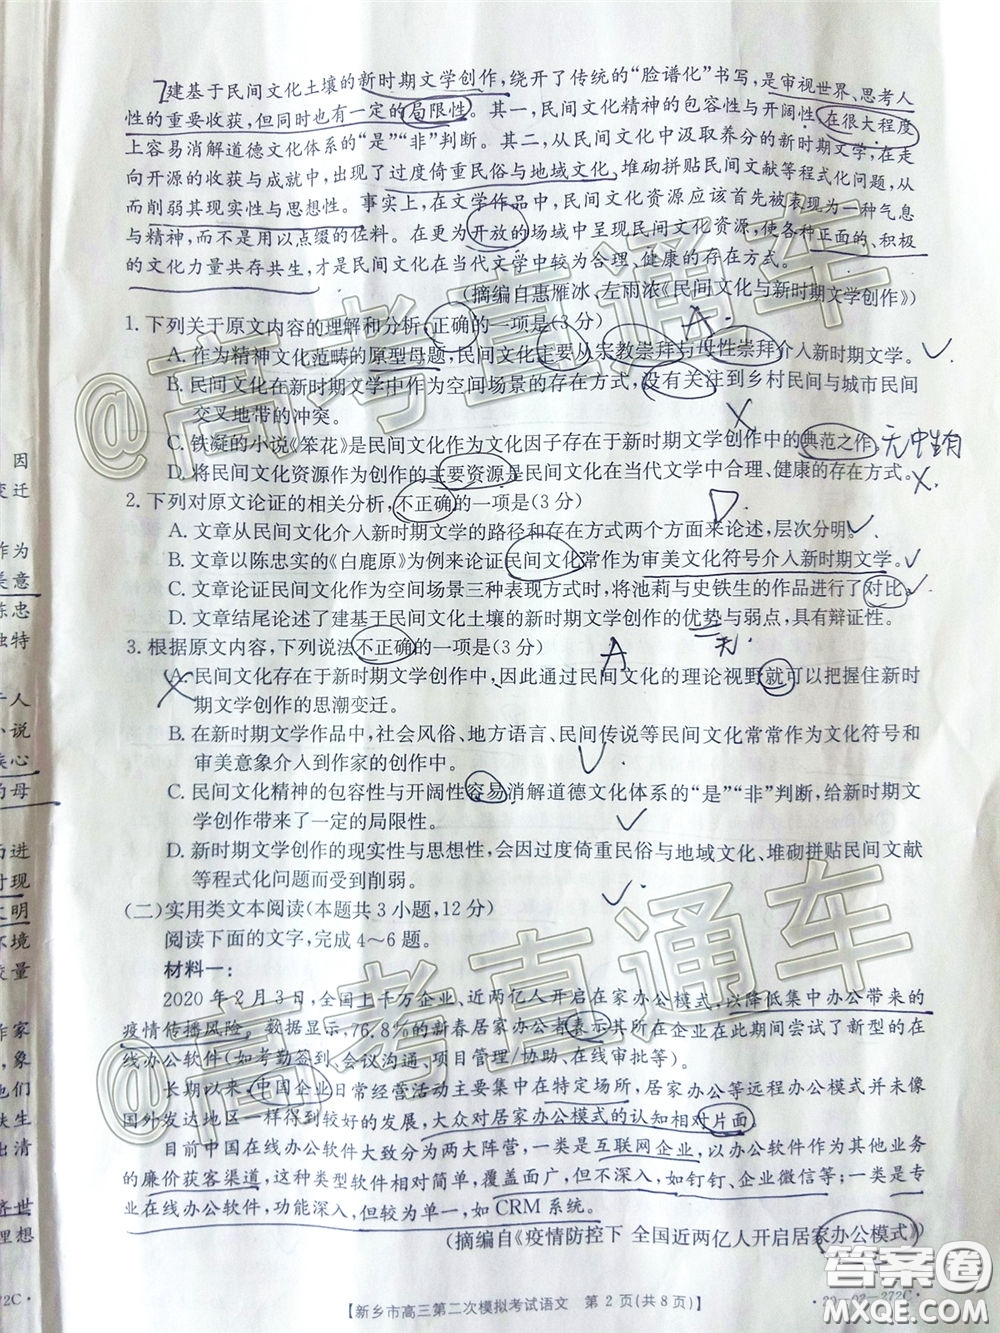 建基于民间文化土壤的新时期文学创作,绕开了传统的“脸谱化”书写,是审视世界、思考人
性的重要收获,但同时也有一定的局限性。其一,民间文化精神的包容性与开阔性,在很大程度
上容易消解道德文化体系的“是”“非”判断。其二,从民间文化中汲取养分的新时期文学,在走
向开源的收获与成就中,出现了过度倚重民俗与地域文化、堆砌拼贴民间文献等程式化问题,从
而削弱其现实性与思想性。事实上,在文学作品中,民间文化资源应该首先被表现为一种气息
与精神,而不是用以点缀的佐料。在更为开放的场域中呈现民间文化资源,使各种正面的、积极
的文化力量共存共生,才是民间文化在当代文学中较为合理、健康的存在方式。
(摘编自惠雁冰、左雨浓《民间文化与新时期文学创作》)
1. 下列关于原文内容的理解和分析,正确的一项是(3 分)
A
A. 作为精神文化范畴的原型母题,民间文化主要从宗教崇拜与母性崇拜介入新时期文学。
B. 民间文化在新时期文学中作为空间场景的存在方式,没有关注到乡村民间与城市民间
交叉地带的冲突。
C. 铁凝的小说《笨花》是民间文化作为文化因子存在于新时期文学创作中的典范之作。
无中生有
D. 将民间文化资源作为创作的主要资源是民间文化在当代文学中合理、健康的存在方式。
2. 下列对原文论证的相关分析,不正确的一项是(3 分)
D
A. 文章从民间文化介入新时期文学的路径和存在方式两个方面来论述,层次分明。
B. 文章以陈忠实的《白鹿原》为例来论证民间文化常作为审美文化符号介入新时期文学。
C. 文章论证民间文化作为空间场景三种表现方式时,将池莉与史铁生的作品进行了对比。
D. 文章结尾论述了建基于民间文化土壤的新时期文学创作的优势与弱点,具有辩证性。
3. 根据原文内容,下列说法不正确的一项是(3 分)
A
A. 民间文化存在于新时期文学创作中,因此通过民间文化的理论视野就可以把握住新时
期文学创作的思潮变迁。
B. 在新时期文学作品中,社会风俗、地方语言、民间传说等民间文化常常作为文化符号和
审美意象介入到作家的创作中。
C. 民间文化精神的包容性与开阔性容易消解道德文化体系的“是”“非”判断,给新时期文
学创作带来了一定的局限性。
D. 新时期文学创作的现实性与思想性,会因过度倚重民俗与地域文化、堆砌拼贴民间文献
等程式化问题而受到削弱。
(二)实用类文本阅读(本题共 3 小题,12 分)
阅读下面的文字,完成 4～6 题。
材料一:
2020 年 2 月 3 日,全国上千万企业、近两亿人开启在家办公模式,以降低集中办公带来的
疫情传播风险。数据显示,76.8%的新春居家办公者表示其所在企业在此期间尝试了新型的在
线办公软件(如考勤签到、会议沟通、项目管理/协助、在线审批等)。
长期以来,中国企业日常经营活动主要集中在特定场所,居家办公等远程办公模式并未像
国外发达地区一样得到较好的发展,大众对居家办公模式的认知相对片面。
目前中国在线办公软件大致分为两大阵营,一类是互联网企业,以办公软件作为其他业务
的廉价获客渠道,这种类型软件相对简单,覆盖面广,但不深入,如钉钉、企业微信等;一类是专
业在线办公软件,功能深入,但较为单一,如 CRM 系统。
(摘编自《疫情防控下 全国近两亿人开启居家办公模式》)
【新乡市高三第二次模拟考试语文 第 2 页(共 8 页)】
·20-02-272C·
因
变迁
作为
美意
陈忠
独特
一人
小说
的母
而进
时现
文明
环境
较量
作家
,象
他们
失生
出清
济世
理想
72C·
@高考直通车
@高考直通车
答案圈
MXQE.COM